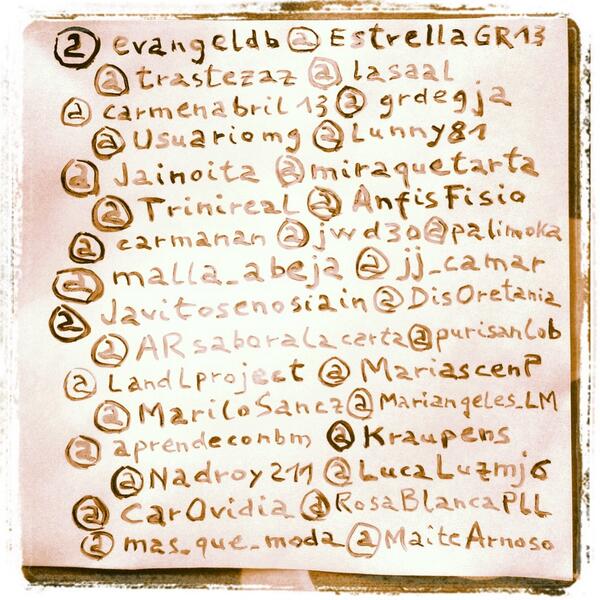 @evangeldb @EstrellaGR13
@trastezaz @lasaal
@carmenabril13 @grdegja
@Usuariomg @Lunny81
@Jainoita @miraquetarta
@Trinireal @AnfisFisio
@carmanan @jwd30 @palimoka
@malla_abeja @jj_camar
@Javitosenosiain @DisOretania
@ARsaboraLacarta @purisanlob
@LandLproject @MariascenP
@MariloSancz @Mariangeles_LM
@aprendeconbm @Kraupens
@Nadroy211 @LucaLuzmj6
@CarOvidia @RosaBlancaPLL
@mas_que_moda @MaiteArnoso